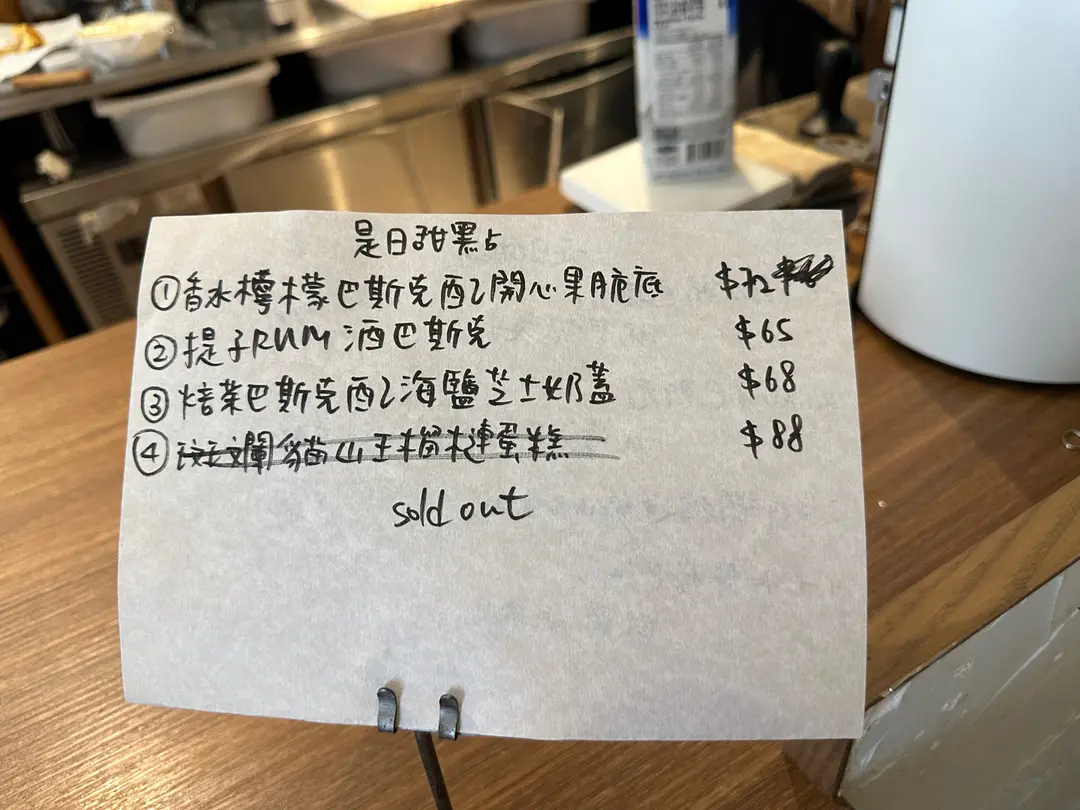 是日甜黑占
①香水檸檬巴斯克配開心果脆底 $72
②提子RUM酒巴斯克 $65
③焙茶巴斯克配海鹽芝士奶蓋 $68
④斑斕貓山王榴槤蛋糕 $88
sold out